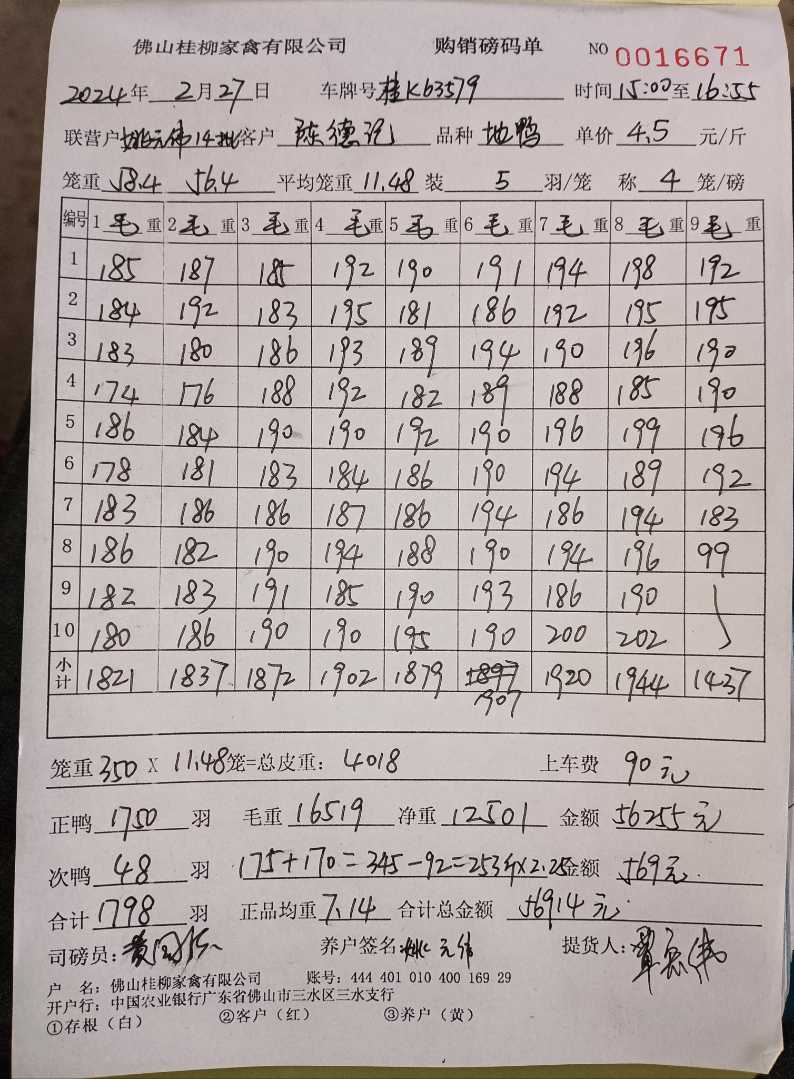 佛山桂柳家禽有限公司 购销磅码单 NO 0016671
2024年 2月27日 车牌号 桂K63579 时间 15:00至 16:55
联营户 姚元伟14批 客户 陈德 品种 地鸭 单价 4.5 元/斤
笼重 58.4 56.4 平均笼重 11.48 装 5 羽/笼 称 4 笼/磅
编号 1 毛 重 2 毛 重 3 毛 重 4 毛 重 5 毛 重 6 毛 重 7 毛 重 8 毛 重 9 毛 重
1 185 187 185 192 190 191 194 198 192
2 184 192 183 195 181 186 192 195 195
3 183 180 186 193 189 194 190 196 190
4 174 176 188 192 182 189 188 185 190
5 186 184 190 190 192 190 196 199 196
6 178 181 183 184 186 190 194 189 192
7 183 186 186 187 186 194 186 194 183
8 186 182 190 194 188 190 194 196 99
9 182 183 191 185 190 193 186 190
10 180 186 190 190 195 190 200 202
小计 1821 1837 1872 1902 1879 1897 1920 1944 1437
1907
笼重 350 X 11.48 笼=总皮重: 4018 上车费 90元
正鸭 1750 羽 毛重 16519 净重 12501 金额 56255元
次鸭 48 羽 175+170=345-92=253斤×2.25 金额 569元.
合计 1798 羽 正品均重 7.14 合计总金额 56914元
司磅员: 养户签名 姚元伟 提货人:
户 名: 佛山桂柳家禽有限公司 账号: 444 401 010 400 169 29
开户行: 中国农业银行广东省佛山市三水区三水支行
①存根(白) ②客户(红) ③养户(黄)